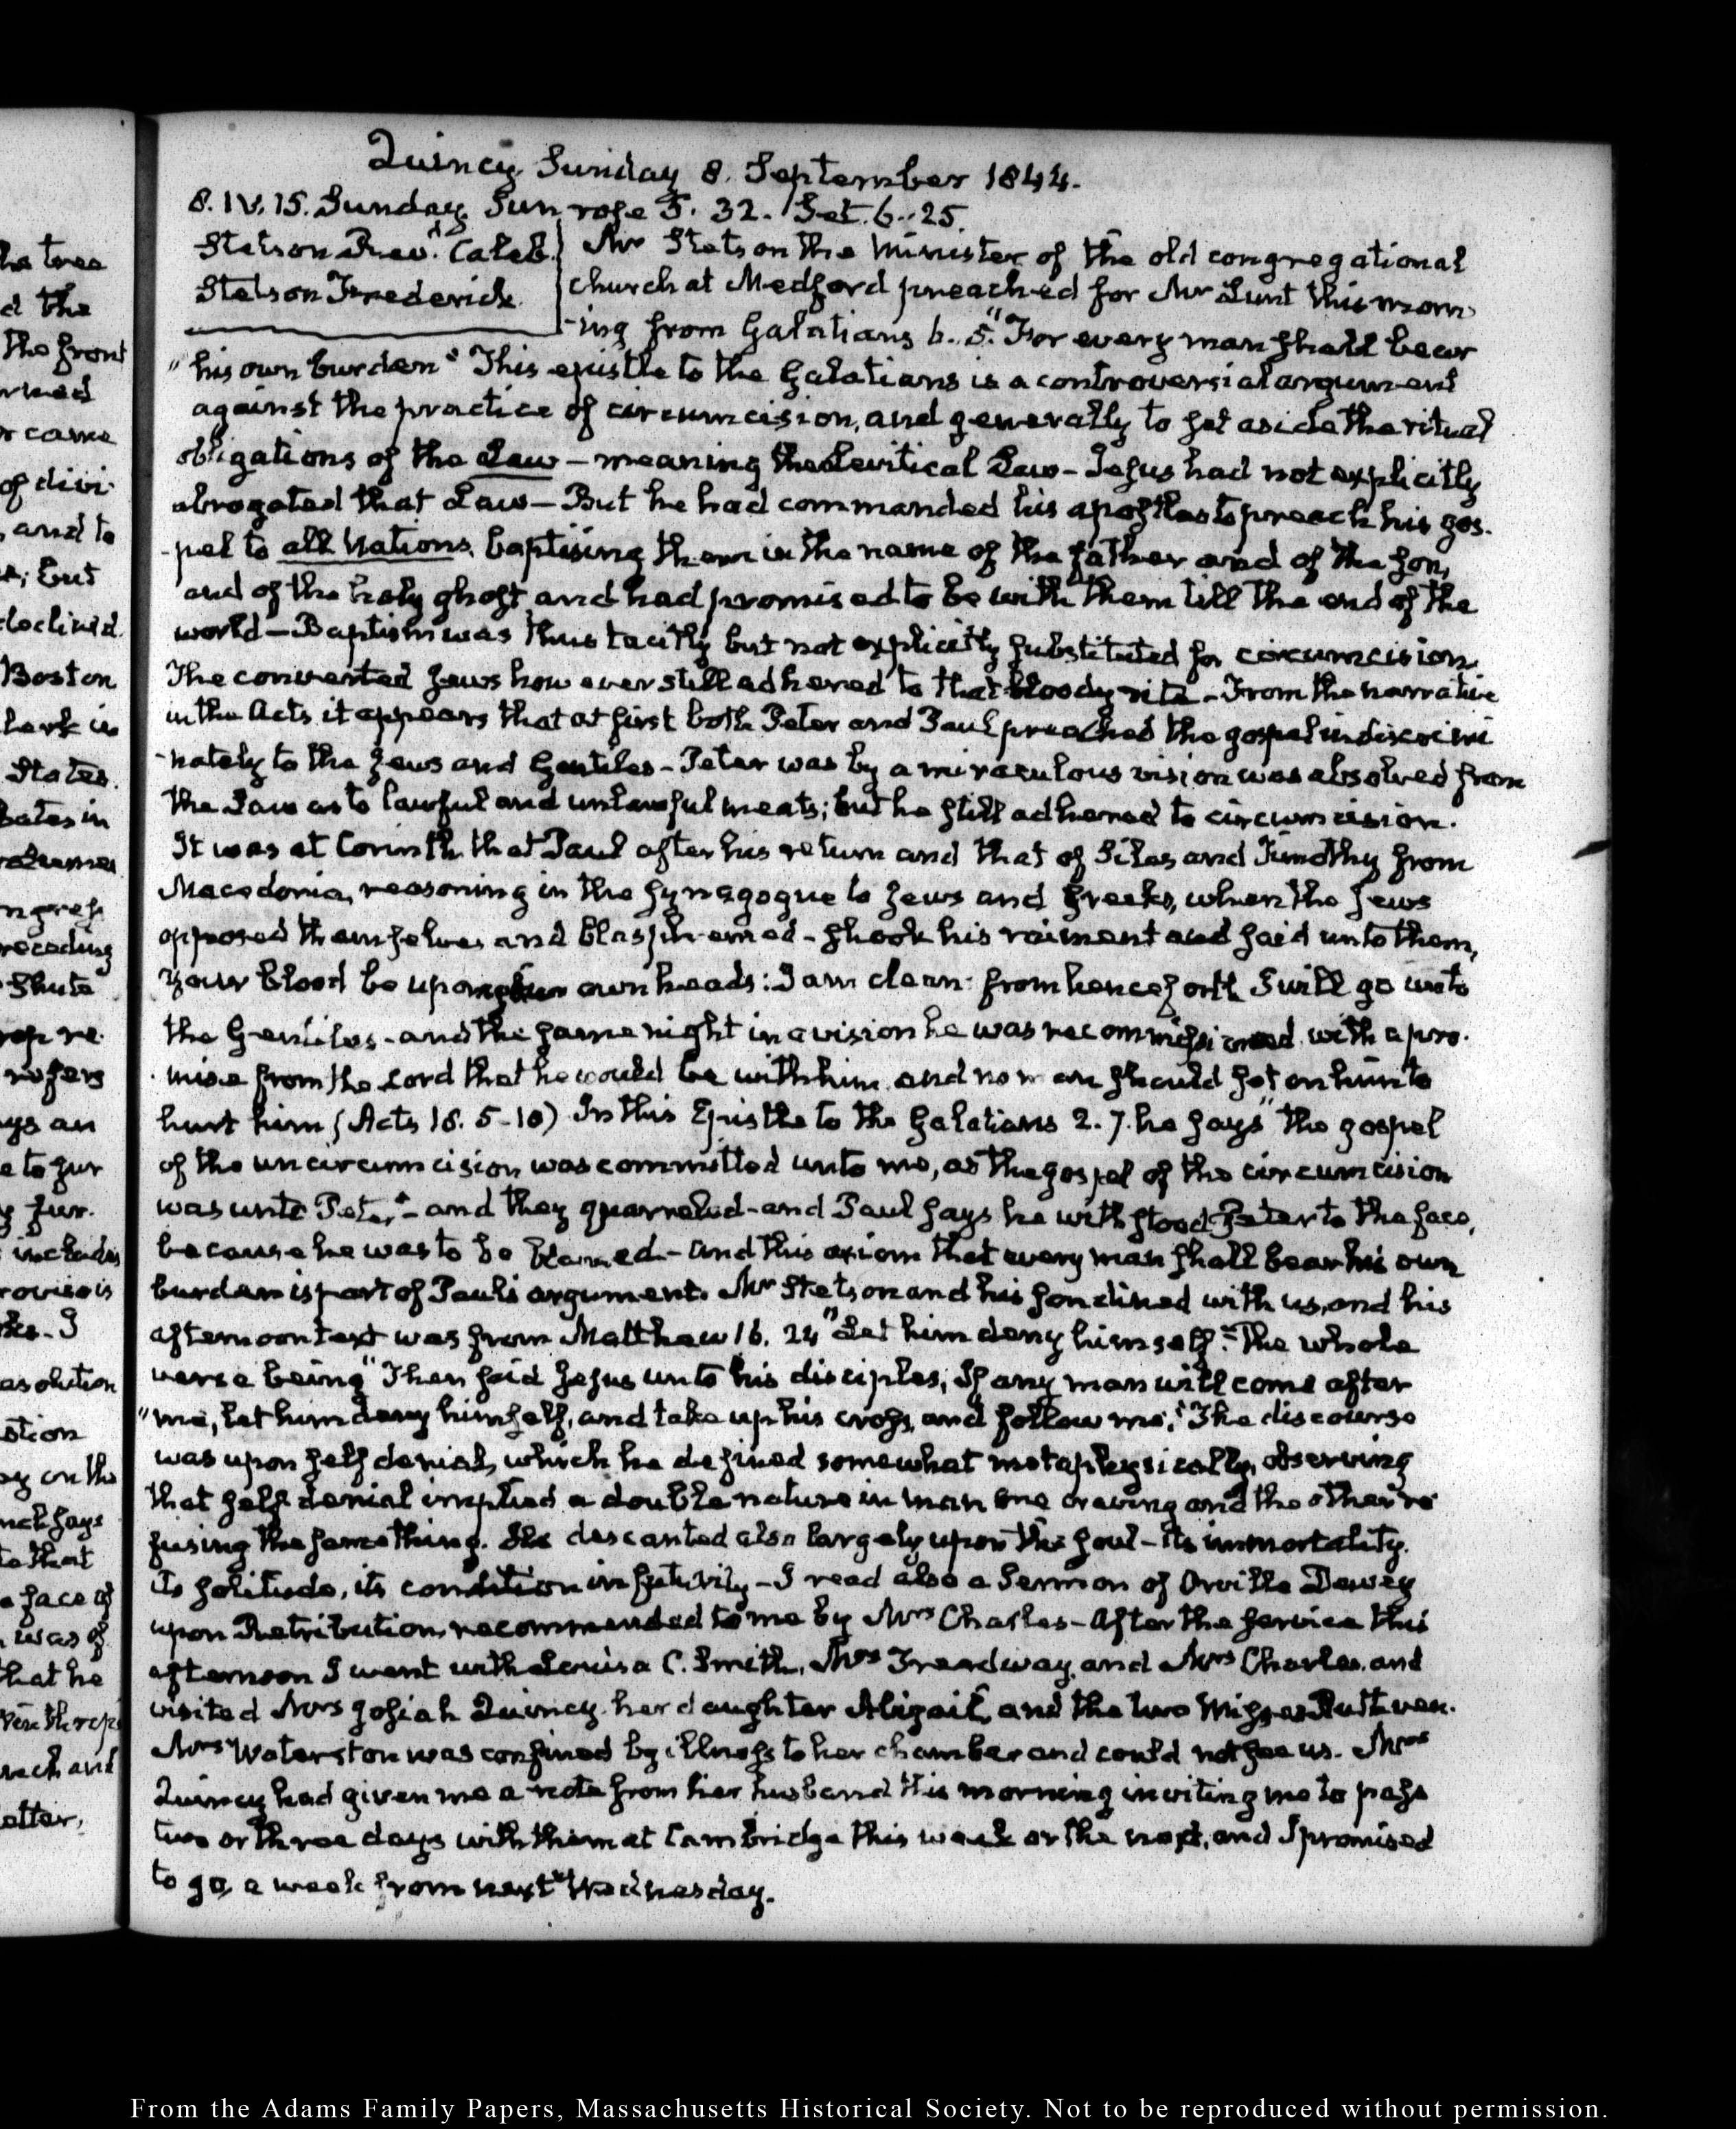 Quincy Sunday 8. September 1844.
8. IV. 15. Sunday. Sun rose 5. 32. Set. 6. 25.
Stetson Revd. Caleb
Stetson Frederick.
Mr Stetson the Minister of the old congregational
church at Medford preached for Mr Lunt this morn-
-ing from Galatians 6. 5. "For every man shall bear
"his own burden" This epistle to the Galatians is a controversial argument
against the practice of circumcision, and generally to set aside the ritual
obligations of the Law — meaning the Levitical Law — Jesus had not explicitly
abrogated that Law — But he had commanded his apostles to preach his gos-
-pel to all Nations, baptising them in the name of the father and of the son,
and of the holy ghost, and had promised to be with them till the end of the
world — Baptism was thus tacitly but not explicitly substituted for circumcision.
The converted Jews however still adhered to that bloody rite — From the narrative
in the Acts it appears that at first both Peter and Paul preached the gospel indiscrimi
-nately to the Jews and Gentiles — Peter was by a miraculous vision was absolved from
the Law as to lawful and unlawful meats; but he still adhered to circumcision.
It was at Corinth that Paul after his return and that of Silas and Timothy from
Macedonia, reasoning in the synagogue to Jews and Greeks, when the Jews
opposed themselves and blasphemed — shook his raiment and said unto them,
Your blood be upon your own heads: I am clean: from henceforth I will go unto
the Gentiles — and the same night in a vision he was recommissioned with a pro-
-mise from the Lord that he would be with him and no man should set on him to
hurt him (Acts 18. 5-10) In this Epistle to the Galatians 2. 7. he says "the gospel
of the uncircumcision was committed unto me, as the gospel of the circumcision
was unto Peter" — and they quarreled — and Paul says he withstood Peter to the face,
because he was to be blamed — and this axiom that every man shall bear his own
burden is part of Paul's argument. Mr Stetson and his son dined with us, and his
afternoon text was from Matthew 16. 24 "Let him deny himself." The whole
verse being "Then said Jesus unto his disciples, If any man will come after
"me, let him deny himself, and take up his cross, and follow me." The discourse
was upon self denial, which he defined somewhat metaphysically, observing
that self denial implied a double nature in man one craving and the other re
fusing the same thing. He descanted also largely upon the soul — its immortality,
its solitude, its condition in futurity — I read also a Sermon of Orville Dewey
upon Retribution, recommended to me by Mrs Charles — After the service this
afternoon I went with Louisa C. Smith, Mrs Treadway, and Mrs Charles, and
visited Mrs Josiah Quincy, her daughter Abigail, and the two Misses
Mrs Waterston was confined by illness to her chamber and could not see us. Mrs
Quincy had given me a note from her husband this morning inviting me to pass
two or three days with them at Cambridge this week or the next, and I promised
to go, a week from next Wednesday.
From the Adams Family Papers, Massachusetts Historical Society. Not to be reproduced without permission.